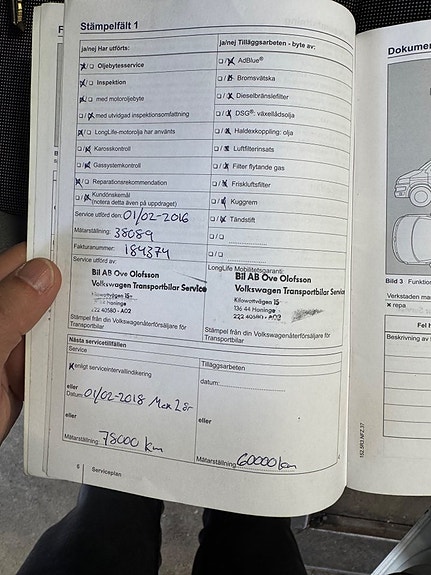 Stämpelfält 1
ja/nej Har utförts:
Oljebytesservice
Inspektion
med motoroljebyte
med utvidgad inspektionsomfattning
LongLife-motorolja har använts
Karosskontroll
Gassystemkontroll
Reparationsrekommendation
Kundönskemål
(notera detta även på uppdraget)
Service utförd den: 01/02-2016
Mätarställning: 38089
Fakturanummer: 184374
Service utförd av:
Bil AB Ove Olofsson
Volkswagen Transportbilar Service
Kilowattvägen 15
Haninge
222 40580 - A02
Stämpel från din Volkswagenåterförsäljare för
Transportbilar
ja/nej Tilläggsarbeten - byte av:
AdBlue®
Bromsvätska
Dieselbränslefilter
DSG®: växellådsolja
Haldexkoppling: olja
Luftfilterinsats
Filter flytande gas
Friskluftsfilter
Kuggrem
Tändstift
LongLife Mobilitetsgaranti:
Bil AB Ove Olofsson
Volkswagen Transportbilar Servic
Kilowattvägen 15
136 44 Haninge
222 40580 - A02
Stämpel från din Volkswagenåterförsäljare för
Transportbilar
Nästa servicetillfällen
Service
enligt serviceintervallindikering
eller
Datum: 01/02-2018 Max 2 år
eller
Mätarställning: 78000 km
Tilläggsarbeten
datum:
eller
Mätarställning: 60000 km
6 Serviceplan
152.5R3.NFZ.37
Dokumen
Bild 3 Funktion
Verkstaden mar
× repa
Fel h
Beskrivning av